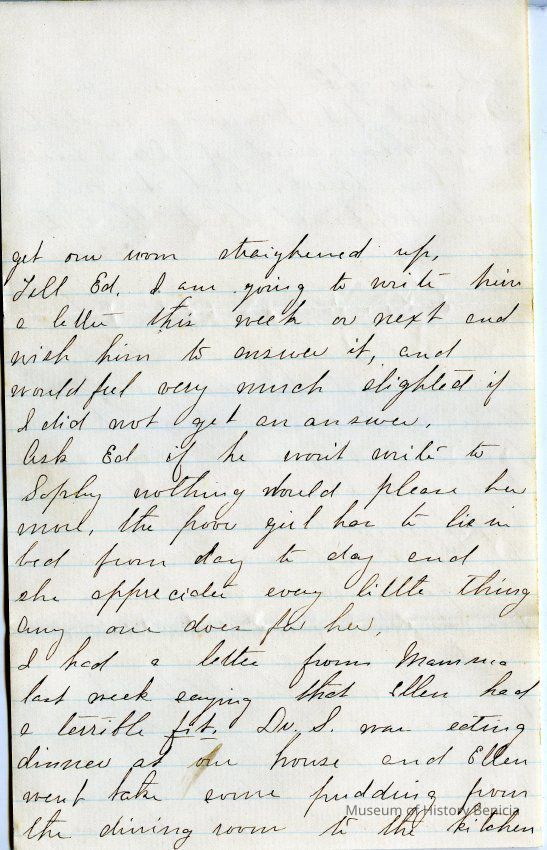 get our room straighened up,
Tell Ed. I am going to write him
a letter this week or next and
wish him to answer it, and
would feel very much slighted if
I did not get an answer.
Ask Ed if he wont write to
Sophy nothing would please her
more, the poor girl has to lie in
bed from day to day and
she appreciates every little thing
any one does for her.
I had a letter from Mamma
last week saying that Ellen had
a terrible fit. Dr. S. was eating
dinner at our house and Ellen
went take some pudding from
the dining room to the kitchen
Museum of History Benicia